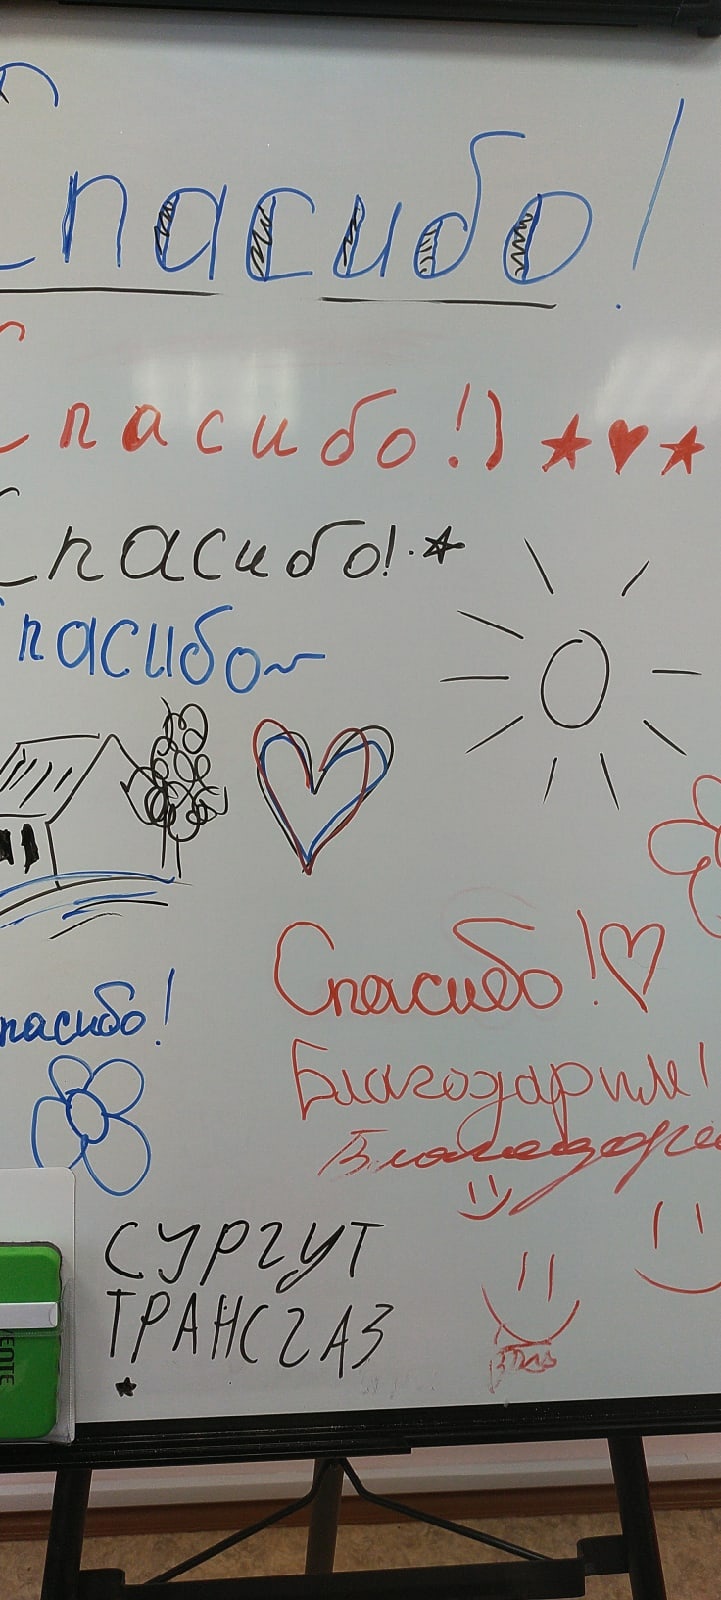 Спасибо!
Спасибо!)
Спасибо!
Спасибо
Спасибо!
пасибо!
Благодарим!
СУРГУТ
ТРАНСГАЗ